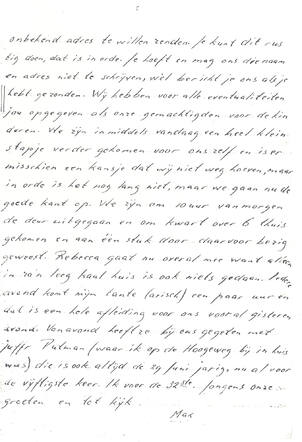 2
onbekend adres te willen zenden. Je kunt dit rus
tig doen, dat is in orde. Je hoeft en mag ons die naam
en adres niet te schrijven, wèl bericht je ons als je
hebt gezonden. Wij hebben voor alle eventualiteiten
jou opgegeven als onze gemachtigden voor de kin
deren. We zijn inmiddels vandaag een heel klein
stapje verder gekomen voor ons zelf en is er
misschien een kansje dat wij niet weg hoeven, maar
in orde is het nog lang niet, maar we gaan nu de
goede kant op. We zijn om 10 uur van morgen
de deur uitgegaan en om kwart over 6 thuis
gekomen en aan één stuk door daarvoor bezig
geweest. Rebecca gaat nu overal mee want alleen
in zo'n leeg haal huis is ook niets gedaan. Iedere
avond komt mijn tante (arisch) een paar uur en
dat is een hele afleiding voor ons vooral gisteren
avond. Vanavond heeft ze bij ons gegeten met
juffr Putman (waar ik op de Hoogeweg bij in huis
was) die is ook altijd de 29 Juni jarig, nu al voor
de vijftigste keer. Ik voor de 32ste. Jongens onze
groeten en tot kijk.
Max